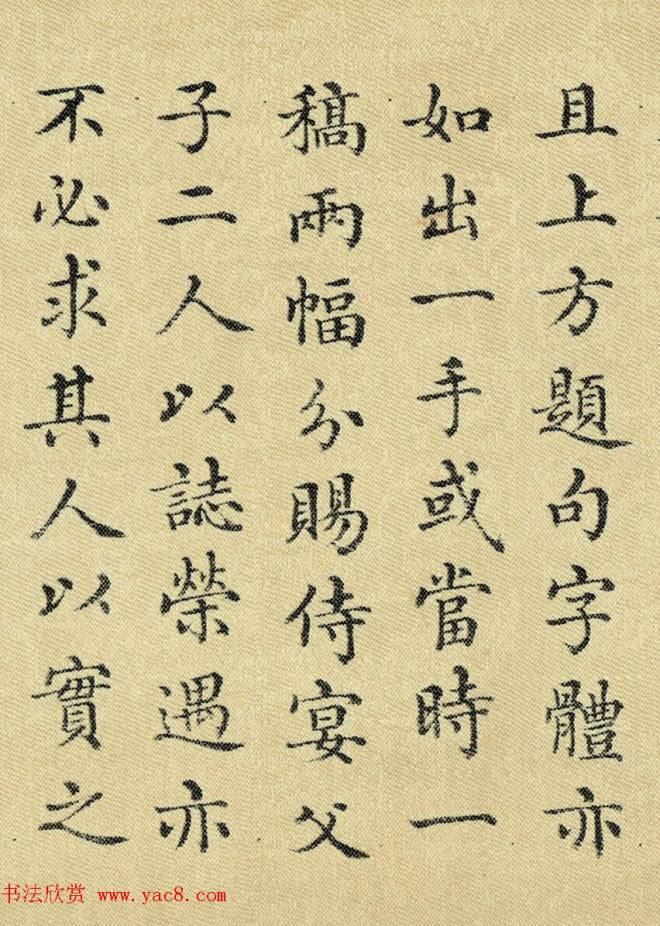 且上方題句字體亦
如出一手或當時一
稿兩幅分賜侍宴父
子二人以誌榮遇亦
不必求其人以實之
书法欣赏 www.yac8.com